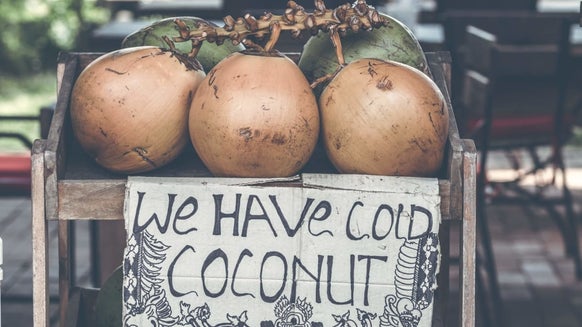 We Have Cold
Coconut